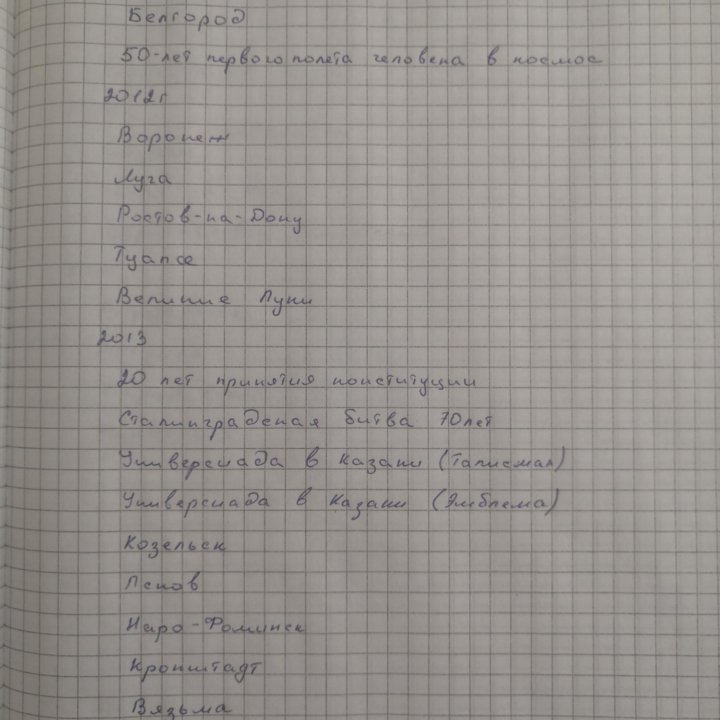 Белгород
50-лет первого полета человека в космос
2012г
Воронеж
Луга
Ростов-на-Дону
Туапсе
Великие Луки
2013
20 лет принятия конституции
Сталинградская битва 70лет
Универсиада в Казани (Талисман)
Универсиада в Казани (Эмблема)
Козельск
Псков
Наро-Фоминск
Кронштадт
Вязьма